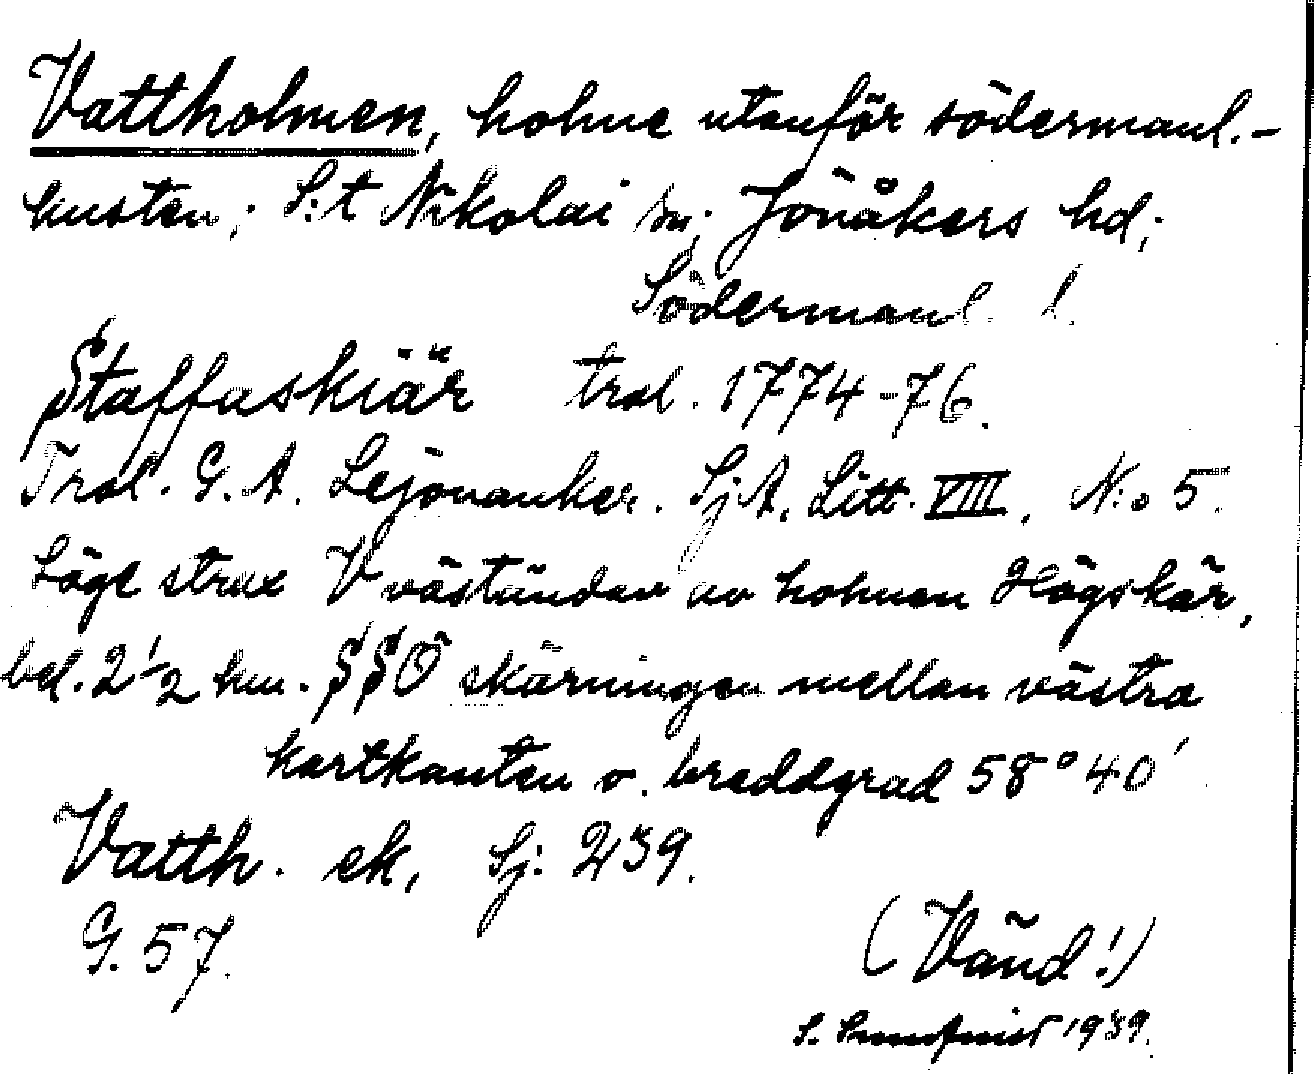 Vattholmen, holme utanför södermanl.-
kusten; S:t Nikolai sn; Jönåkers hd;
Södermanl. l.
Staffaskiär trol. 1774-76.
Trol. G. A. Lejonanker. SjA. Litt. VIII, N:o 5.
Läge strax V väständan av holmen Högskär,
bel. 2 1/2 km. SSO skärningen mellan västra
kartkanten o. breddgrad 58° 40'
Vatth. ek, Sj: 239.
G. 57.
(Vänd!)
S. 1939.